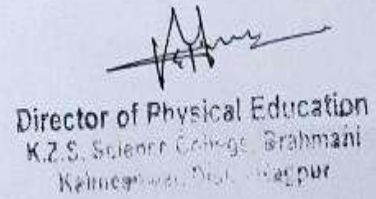 Director of Physical Education
K.Z.S. Science College, Brahmani
Kalmeshwar, Dist. Nagpur